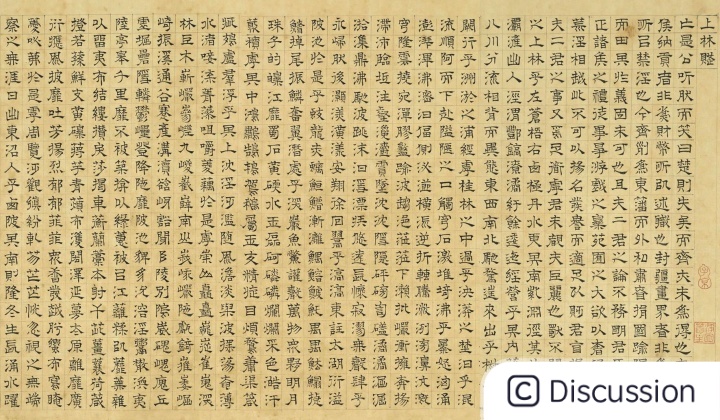 上林賦
亡是公听然而笑曰楚則失矣而齊亦未為得也夫
侯納貢者非為財幣所以述職也封疆畫界者非為
所以禁淫也今齊列為東藩而外私肅慎捐國踰限
而田其於義固未可也且夫二君之論不務明君臣
正諸侯之禮徒事爭於游戲之樂苑囿之大欲以奢
荒淫相越此不可以揚名發譽而適足以貶君自損
夫二君之事又焉足道乎君未覩夫巨麗也獨不聞
之上林乎左蒼梧右西極丹水更其南紫淵徑其
灞滻出入涇渭酆鎬潦潏紆餘委蛇經營乎其内
八川分流相背而異態東西南北馳騖往來出乎椒
闕行乎洲淤之浦經乎桂林之中過乎泱漭之壄汩乎混
流順阿而下赴隘陿之口觸穹石激堆埼沸乎暴怒洶涌
澎湃滭沸滵汩偪側泌瀄橫流逆折轉騰潎洌滂濞沆溉
穹隆雲橈宛潬膠盭踰波趨浥蒞蒞下瀨批巖衝擁奔揚
滯沛臨坻注壑瀺灂霣墜沈沈隱隱砰磅訇礚潏潏淈淈
湁潗鼎沸馳波跳沫汩濦漂疾悠遠長懷寂漻無聲肆乎
永歸然後灝溔潢漾安翔徐回翯乎滈滈東注太湖衍溢
陂池於是乎蛟龍赤螭䱭䲛漸離鰅鰫鰬魠禺禺魼鰨揵
鰭掉尾振鱗奮翼潛處乎深巖魚鱉讙聲萬物衆夥明月
珠子的皪江靡蜀石黃碝水玉磊砢磷磷爛爛采色澔汗
藂積乎其中鴻鷫鵠鴇駕鵝屬玉交精旋目煩鶩庸渠箴
疵鵁盧群浮乎其上沈淫泛濫隨風澹淡與波搖蕩奄薄
水渚唼喋菁藻咀嚼菱藕於是乎崇山矗矗巃嵸崔巍深
林巨木嶄巖參嵯九嵕嶻嶭南山峨峨巖陁甗錡摧崣崛
崎振溪通谷蹇產溝瀆谽呀豁閜阜陵別隝崴磈嵔廆丘
虛堀礨隱轔鬱㠥登降陁靡陂池貏豸沇溶淫鬻散渙夷
陸亭皋千里靡不被築揜以綠蕙被以江蘺糅以蘪蕪雜
以留夷布結縷攢戾莎揭車衡蘭稾本射干茈薑蘘荷葴
橙若蓀鮮支黃礫蔣苧青薠布濩閎澤延曼太原離靡廣
衍應風披靡吐芳揚烈郁郁菲菲衆香發越肸蠁布寫晻
薆咇茀於是乎周覽泛觀縝紛軋芴芒芒恍忽視之無端
察之無涯日出東沼入乎西陂其南則隆冬生長涌水躍
© Discussion